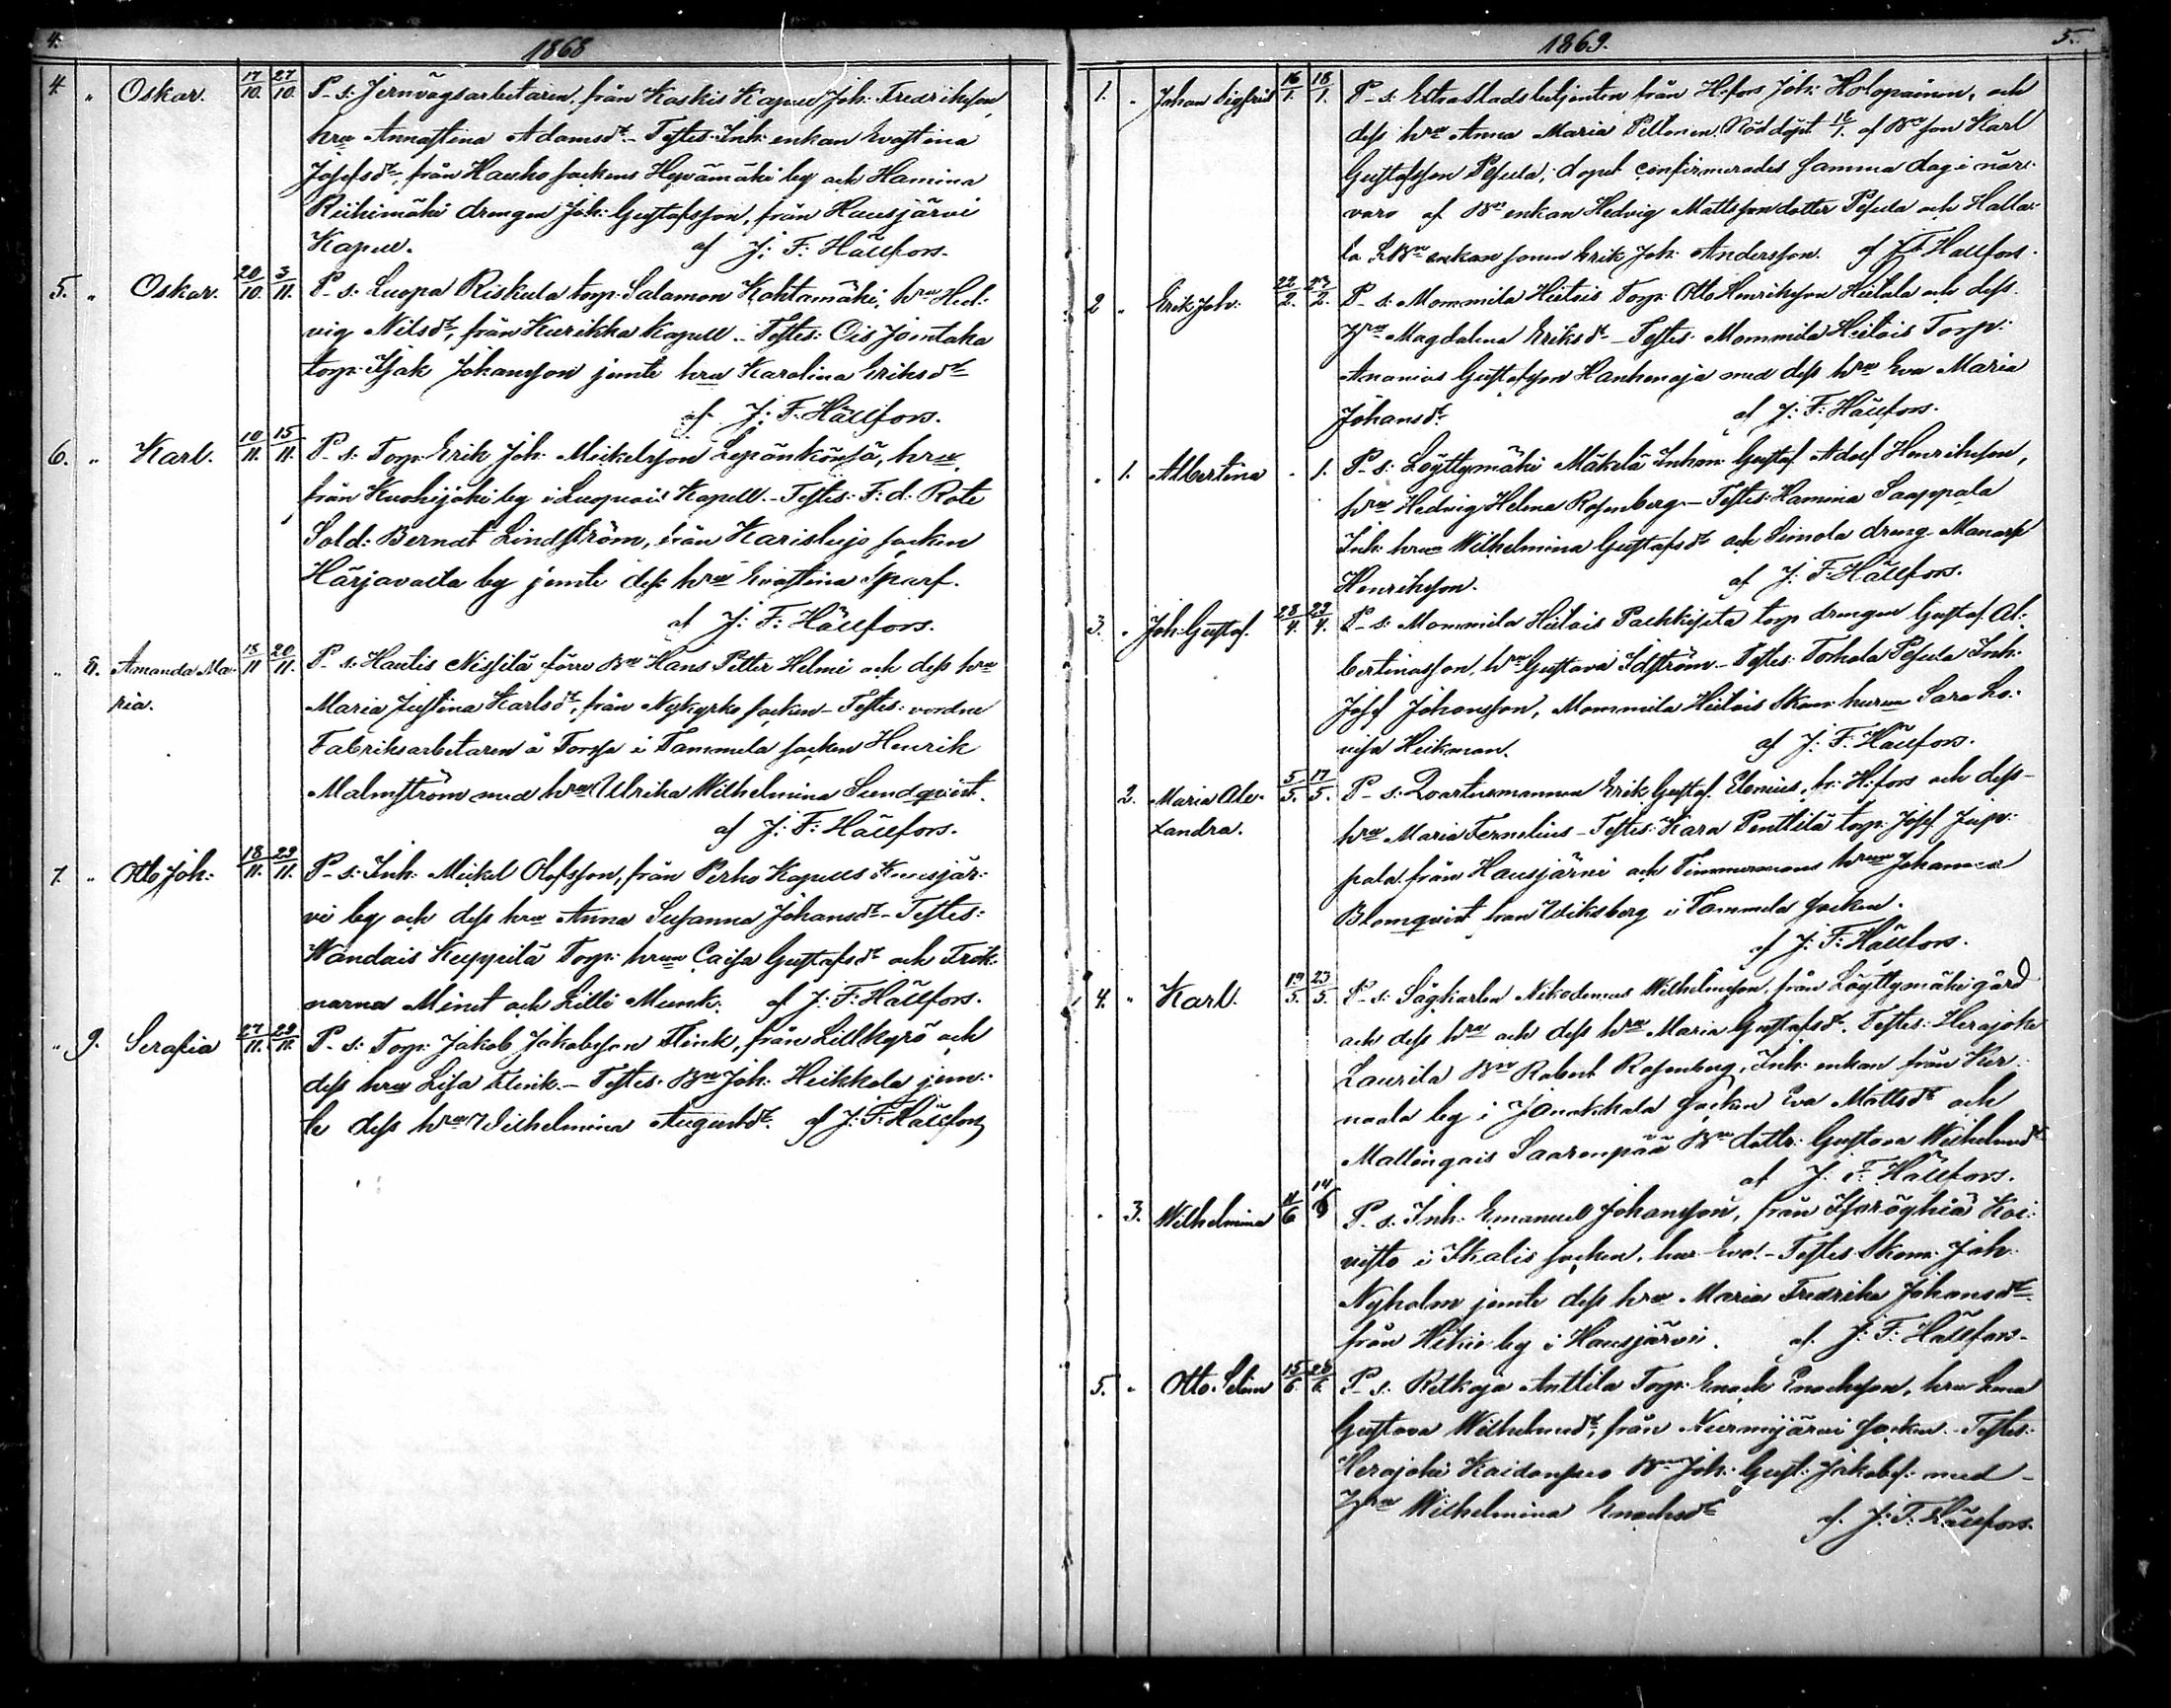 4.
1868
4. " Oskar. 17/10. 27/10. P-s: Jernvägsarbetaren, från Koskis Kapell Joh: Fredriksson,
hru Annastina Adamsdr. - Testes: Inh: enkan Evastina
Josefsdr, från Hauho sockens Hyvämäki by och Hamina
Riihimäki drengen Joh: Gustafsson, från Hausjärvi
Kapell. af J: F: Hällfors.
5. " Oskar. 20/10. 3/11. P-s: Luopa Riskula torp: Salamon Kohtamäki, hru Hed:
vig Nilsdr, från Kurikka Kapell.. Testes: Ois Jointaka
torp: Isak Johansson jemte hru Karolina Eriksdr
af J: F: Hällfors.
6. " Karl. 10/11. 15/11. P-s: Torp: Erik Joh: Mickelsson Lepänkönsä, hru
från Kuohijoki by i Luopiois Kapell. - Testes: F: d: Rote
Sold: Berndt Lindström, från Karislojo socken
Härjavalta by jemte dess hru Evastina Sparf.
af J: F: Hällfors.
" 8. Amanda Ma- 18/11 20/11. P-s: Hautis Nissilä förre Bn Hans Petter Helmi och dess hru
ria. Maria Justina Karlsdr, från Nykyrko socken - Testes: vordne
Fabriksarbetaren å Forssa i Tammela socken Henrik
Malmström med hru Ulrika Wilhelmina Sundqvist.
af J: F: Hällfors.
7. " Otto Joh: 18/11. 29/11. P-s: Inh: Mickel Olofsson, från Perho Kapells Kivisjär:
vi by och dess hru Anna Susanna Johansdr - Testes:
Wandais Kuppilä Torp: hrun Caisa Gustafsdr och Frök:
narna Minet och Lilli Munck. af J: F: Hällfors.
" 9. Serafia 27/11. 29/11. P-s: Torp: Jakob Jakobsson Flink, från Lillkyrö och
dess hru Lisa Flink. - Testes: Bn Joh: Heikkola jem:
te dess hru Wilhelmina Augustdr. af J: F: Hällfors
1869.
5.
1. " Johan Sigfrid 16/1. 18/1. P-s: Extra Stadsbetjenten från H:fors Joh: Holopainen, och
dess hru Anna Maria Peltonen. Nöddöpt 16/1. af Bn son Karl
Gustafsson Pesula, dopet confirmerades samma dag i när:
varo af Bn enkan Hedvig Mattssondotter Pesula och Halla:
la Bn enkan sonen Erik Joh: Andersson. af J: F: Hällfors.
2 " Erik Joh: 22/2. 23/2. P-s: Mommila Hietois Torp: Otto Henriksson Hietala och dess
Hru Magdalena Eriksdr - Testes: Mommila Hietois Torp:
Ananias Gustafsson Hanhenoja med dess hru Eva Maria
Johansdr af J: F: Hällfors.
" 1. Albertina " 1. P-s: Löyttymäki Mäkelä Inhan: Gustaf Adolf Henriksson,
hru Hedvig Helena Rosenberg - Testes: Hamina Saappala
Inh: hrun Wilhelmina Gustafsdr och Simola dreng Manasse
Henriksson. af J: F: Hällfors.
3. " Joh: Gustaf. 28/4. 29/4. P-s: Mommila Hietois Packkysta torp drengen Gustaf Al:
bertinasson, hru Gustava Idström. - Testes: Torhola Pesula Inh:
Josef Johansson, Mommila Hietois Skom: hurun Sara Lo:
visa Heikman. af J: F: Hällfors.
2. Maria Ale- 5/5. 17/5. P-s: Qvartersmannen Erik Gustaf Elenius, fr: H:fors och dess
xandra. hru Maria Fernelius - Testes: Kara Penttilä torp: Josef Jup:
pala från Hausjärvi och Timmermans hrun Johanna
Blomqvist från Wiksberg i Tammela socken.
af J: F: Hällfors.
4. " Karl. 19/5. 23/5. P-s: Sågkarlen Nikodemus Wilhelmsson, från Löyttymäki gård
och dess hru och dess hru Maria Gustafsdr, Testes: Herajoki
Laurila Bn Robert Rosenberg, Inh: enkan från Ker:
naala by i Janakkala socken Eva Mattsdr och
Mallingais Saarenpää Bn dottr: Gustava Wilhelmsdr
af J: F: Hällfors.
" 3. Wilhelmina 11/6 14/6 P-s: Inh: Emanuel Johansson, från Isoröyhiö Koi:
visto i Ikalis socken, hru Eva! - Testes: Skom: Joh:
Nyholm jemte dess hru Maria Fredrika Johansdr
från Hikiä by i Hausjärvi. af J: F: Hällfors.
5. " Otto Selim 15/6. 28/6. P-s: Retkoja Anttila Torp: Enock Enochsson, hru Lena
Gustava Wilhelmsdr, från Nurmijärvi socken. - Testes:
Herajoki Kaidansuo Bn Joh: Gust: Jakobs: med
Hru Wilhelmina Enochsdr af. J: F: Hällfors.